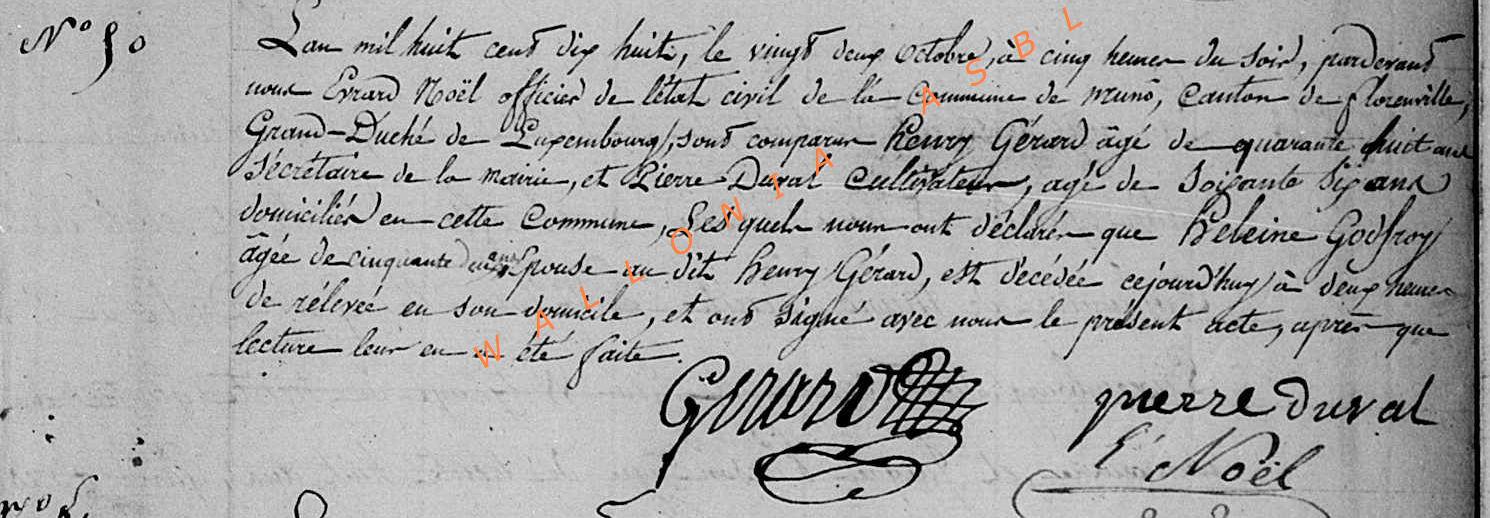 N° 50
L'an mil huit cent dix huit, le vingt deux octobre, à cinq heures du soir, pardevant
nous Evrard Noël officier de l'état civil de la Commune de muno, Canton de florenville,
Grand-Duché de Luxembourg, sont comparus henry Gérard âgé de quarante huit ans
sécrétaire de la mairie, et Pierre Duval Cultivateur, agé de soixante six ans
domiciliés en cette Commune, Les quels nous ont déclarés que heleine Godfroy
âgée de cinquante deux ans Epouse au dit henry Gérard, est décédée cejourd'huy à deux heures
de rélevée en son domicile, et ont signé avec nous le présent acte, après que
lecture leur en a été faite.
Gérard
pierre duval
E Noël
WALLONIA ASBL